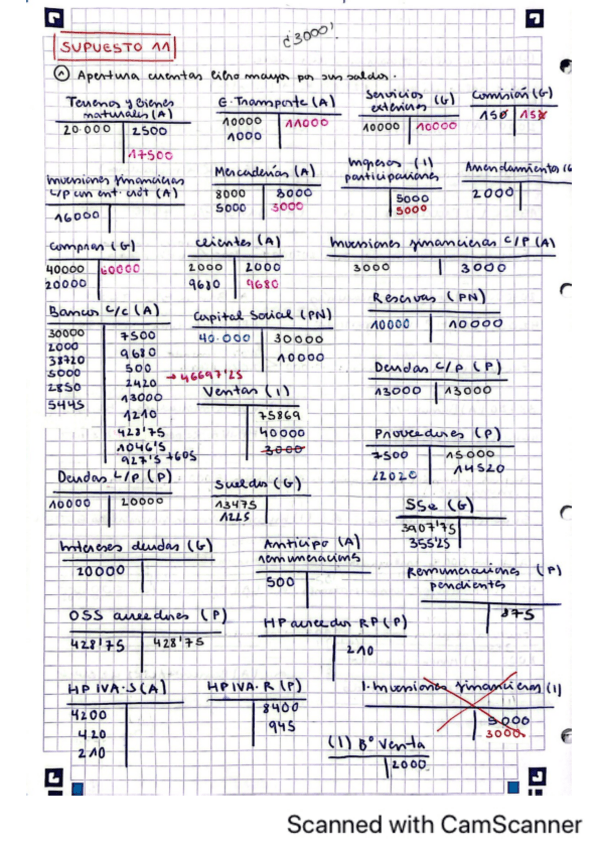 ¿3000!
SUPUESTO 11
① Apertura cuentas libro mayor por sus saldos.
Terrenos y bienes naturales (A)
20.000 2500
17500
E. Transporte (A)
10000 11000
1000
Servicios exteriores (G)
10000 10000
Comisión (G)
150 150
Inversiones financieras c/p con ent. crdt (A)
16000
Mercaderías (A)
8000 8000
5000 3000
Ingresos (I) participaciones
5000
5000
Arrendamientos (G
2000
Compras (G)
40000 60000
20000
Clientes (A)
2000 2000
9680 9680
Inversiones financieras C/P (A)
3000 3000
Bancos c/c (A)
30000 7500
2000 9680
38720 500
5000 2420
2850 13000
5445 1210
428'75
1046'5
927'5 +605
→ 46697'25
Capital Social (PN)
40.000 30000
10000
Reservas (PN)
10000 10000
Deudas C/P (P)
13000 13000
Ventas (I)
75869
40000
3000
Proveedores (P)
7500 15000
22020 14520
Deudas L/P (P)
10000 20000
Sueldos (G)
13475
1225
SSe (G)
3907'75
355'25
Intereses deudas (G)
20000
Anticipo (A) remuneracions
500
Remuneraciones (P) pendientes
875
OSS acreedores (P)
428'75 428'75
HP acreedor RP (P)
210
HP IVA.S (A)
4200
420
210
HP IVA.R (P)
8400
945
I. Inversiones financieras (I)
5000
3000
(I) Bº Venta
2000
Scanned with CamScanner